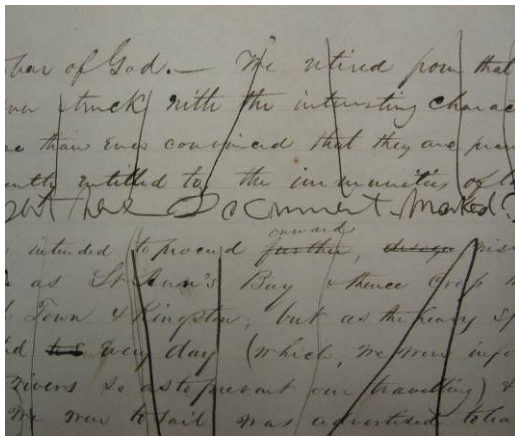 bar of God. — We retired from that
struck with the interesting charac
than ever convinced that they are
entitled to the immunities of
here Document marked
intended to proceed onward further,
as Bay & thence
Town & Kingston; but as the heavy
every day (which, we were info
rivers so as to prevent our travelling) &
we were to sail was advertised to